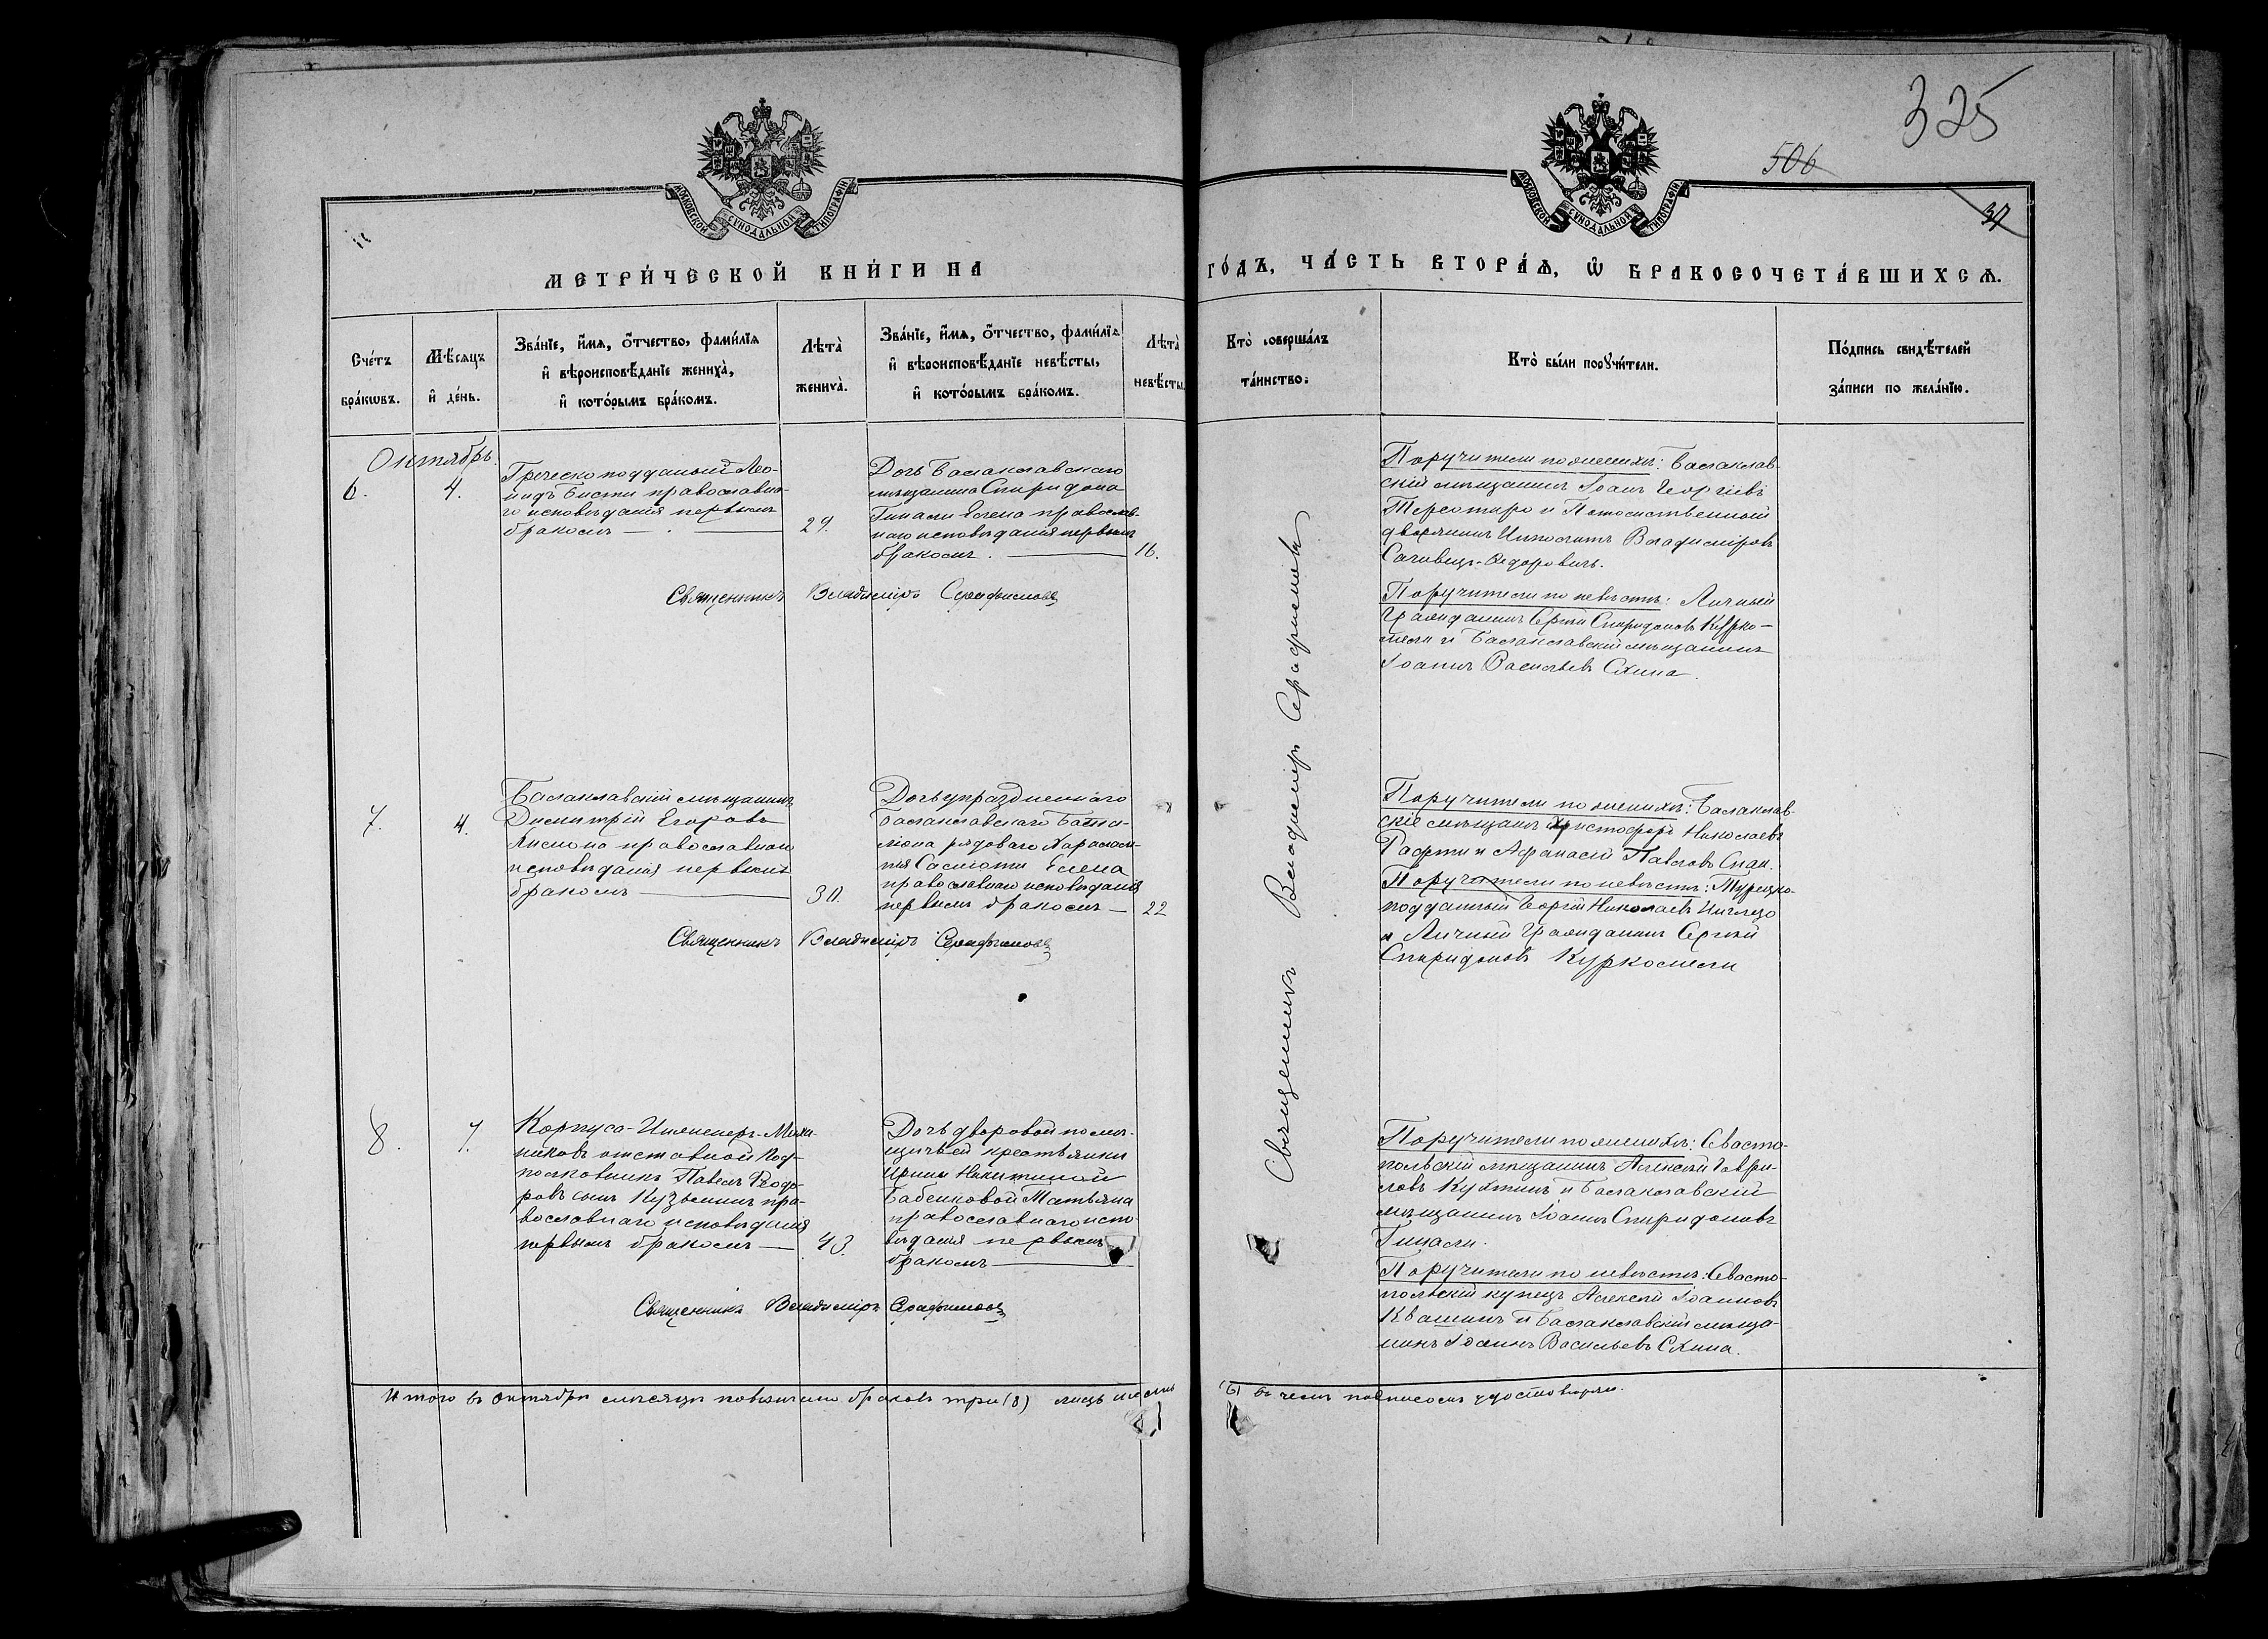 325
506
37
МОСКОВСКОЙ СѴНОДАЛЬНОЙ ТИПОГРАФІИ
МОСКОВСКОЙ СѴНОДАЛЬНОЙ ТИПОГРАФІИ
МЕТРИ́ЧЕСКОЙ КНИ́ГИ НА
ГО́ДЪ, ЧА́СТЬ ВТОРА́Ѧ, Ѽ БРАКОСОЧЕТА́ВШИХСѦ.
Сче́тъ
бра́кѡвъ.
Мѣ́сѧцъ
и҆ де́нь.
Зва́нїе, и҆́мѧ, ѻ҆́тчество, фами́лїѧ
и҆ вѣроисповѣ́данїе жениха̀,
и҆ кото́рымъ бра́комъ.
Лѣта̀
жениха̀.
Зва́нїе, и҆́мѧ, ѻ҆́тчество, фами́лїѧ
и҆ вѣроисповѣ́данїе невѣ́сты,
и҆ кото́рымъ бра́комъ.
Лѣта̀
невѣ́сты.
Кто̀ соверша́лъ
та́инство.
Кто̀ бы́ли порꙋчи́тели.
По́дпись свидѣ́телей
за́писи по жела́нїю.
Октябрь.
6.
4.
Греческоподданый Лео-
нидъ Бисти православна-
го исповѣданія первымъ
бракомъ
29.
Дочь Балаклавскаго
мѣщанина Спиридона
Гинали Елена православ-
наго исповѣданія первымъ
бракомъ.
16.
Священникъ Владиміръ Серафимовъ
Поручители по женихѣ: Балаклав-
скій мѣщанинъ Іоанъ Георгіевъ
и Потомственный
дворянинъ Ипполитъ Владиміровъ
Поручители по невѣстѣ: Личный
Гражданинъ Сергій Спиридоновъ Курко-
мели и Балаклавскій мѣщанинъ
Іоаннъ Васильевъ Схина.
7.
4.
Балаклавскій мѣщанинъ
Димитрій Егоровъ
православнаго
исповѣданія первымъ
бракомъ
30.
Дочь упраздненнаго
Балаклавскаго Бата-
ліона рядового Харалам-
пія Елена
православнаго исповѣданія
первымъ бракомъ
22
Священникъ Владиміръ Серафимовъ
Поручители по женихѣ: Балаклав-
скіе мѣщане Христофоръ Николаевъ
Рафти и Афанасій Павловъ Спаи.
Поручители по невѣстѣ: Турецко-
подданный Георгій Николаевъ
и Личный Гражданинъ Сергій
Спиридоновъ Куркомели
8.
7.
Корпуса-Инженеръ-Меха-
никовъ отставной Под-
полковникъ Павелъ Ѳеодо-
ровъ сынъ Кузьминъ пра-
вославнаго исповѣданія
первымъ бракомъ
43.
Дочь дворовой помѣ-
щичьей крестьянки
Ирины Никитиной
Бабенковой Татьяна
православнаго испо-
вѣданія первымъ
бракомъ
Священникъ Владиміръ Серафимовъ
Поручители по женихѣ: Севасто-
польскій мѣщанинъ Алексѣй Гаври-
ловъ Кухтинъ и Балаклавскій
мѣщанинъ Іоаннъ Спиридоновъ
Гинали.
Поручители по невѣстѣ: Севасто-
польскій купецъ Алексѣй Іоанновъ
Квашинъ и Балаклавскій мѣща-
нинъ Іоаннъ Васильевъ Схина.
Священникъ Владиміръ Серафимовъ
Итого въ Октябрѣ мѣсяцѣ повѣнчано браковъ три (3) лицъ шесть
(6) въ чемъ подписомъ удостовѣряю.